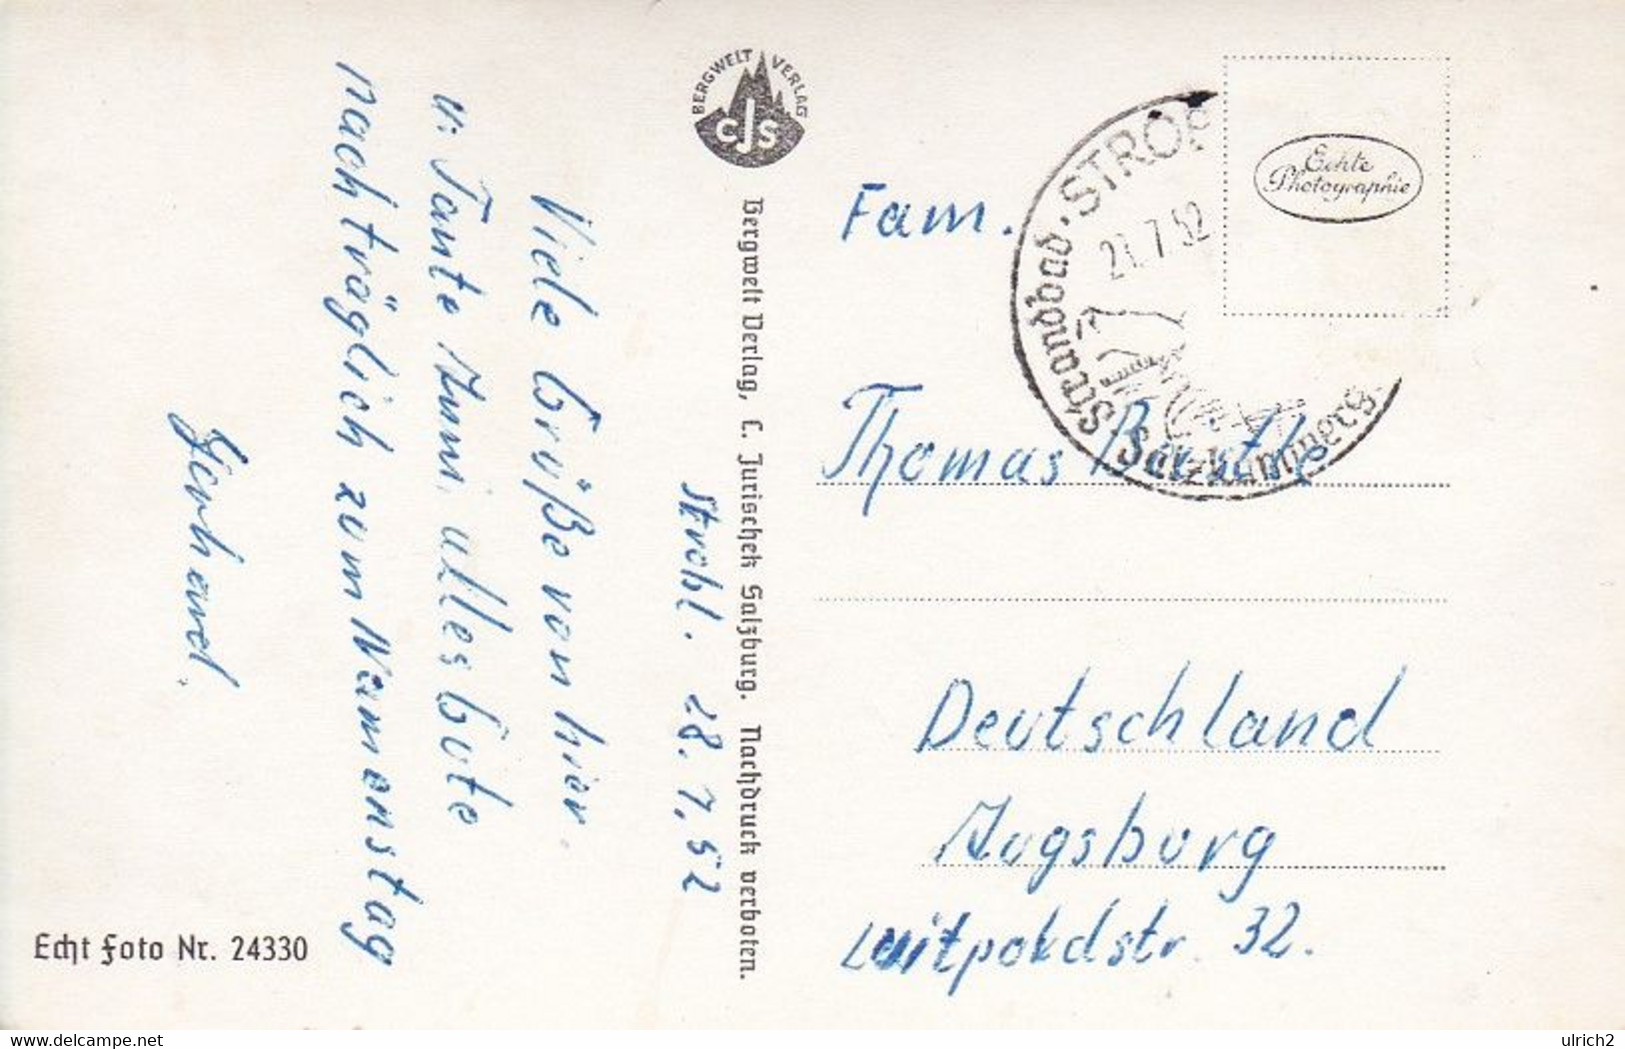 Strobl. 28. 7. 52
Viele Grüße von hier.
u. Tante Anni alles Gute
nachträglich zum Namenstag
Gerhard.
BERGWELT VERLAG
CJS
Bergwelt Verlag, C. Jurischek Salzburg. Nachdruck verboten.
Echt Foto Nr. 24330
Echte
Photographie
STROB
Strandbad
Salzkammerg.
7.52
Fam.
Thomas
Deutschland
Augsburg
Luitpoldstr. 32.
www.delcampe.net
ulrich2